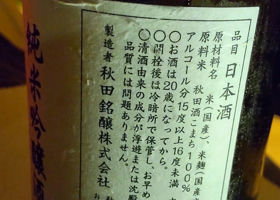 品目 日本酒
原材料名 米(国産)、米麹(国産
原料米 秋田酒こまち100%
アルコール分15度以上16度未満
○お酒は20歳になってから。
○開栓後は冷暗所で保管し、お早め
○清酒由来の成分が浮遊または沈殿
品質には問題ありません。
製造者 秋田銘醸株式会社
純米吟醸酒